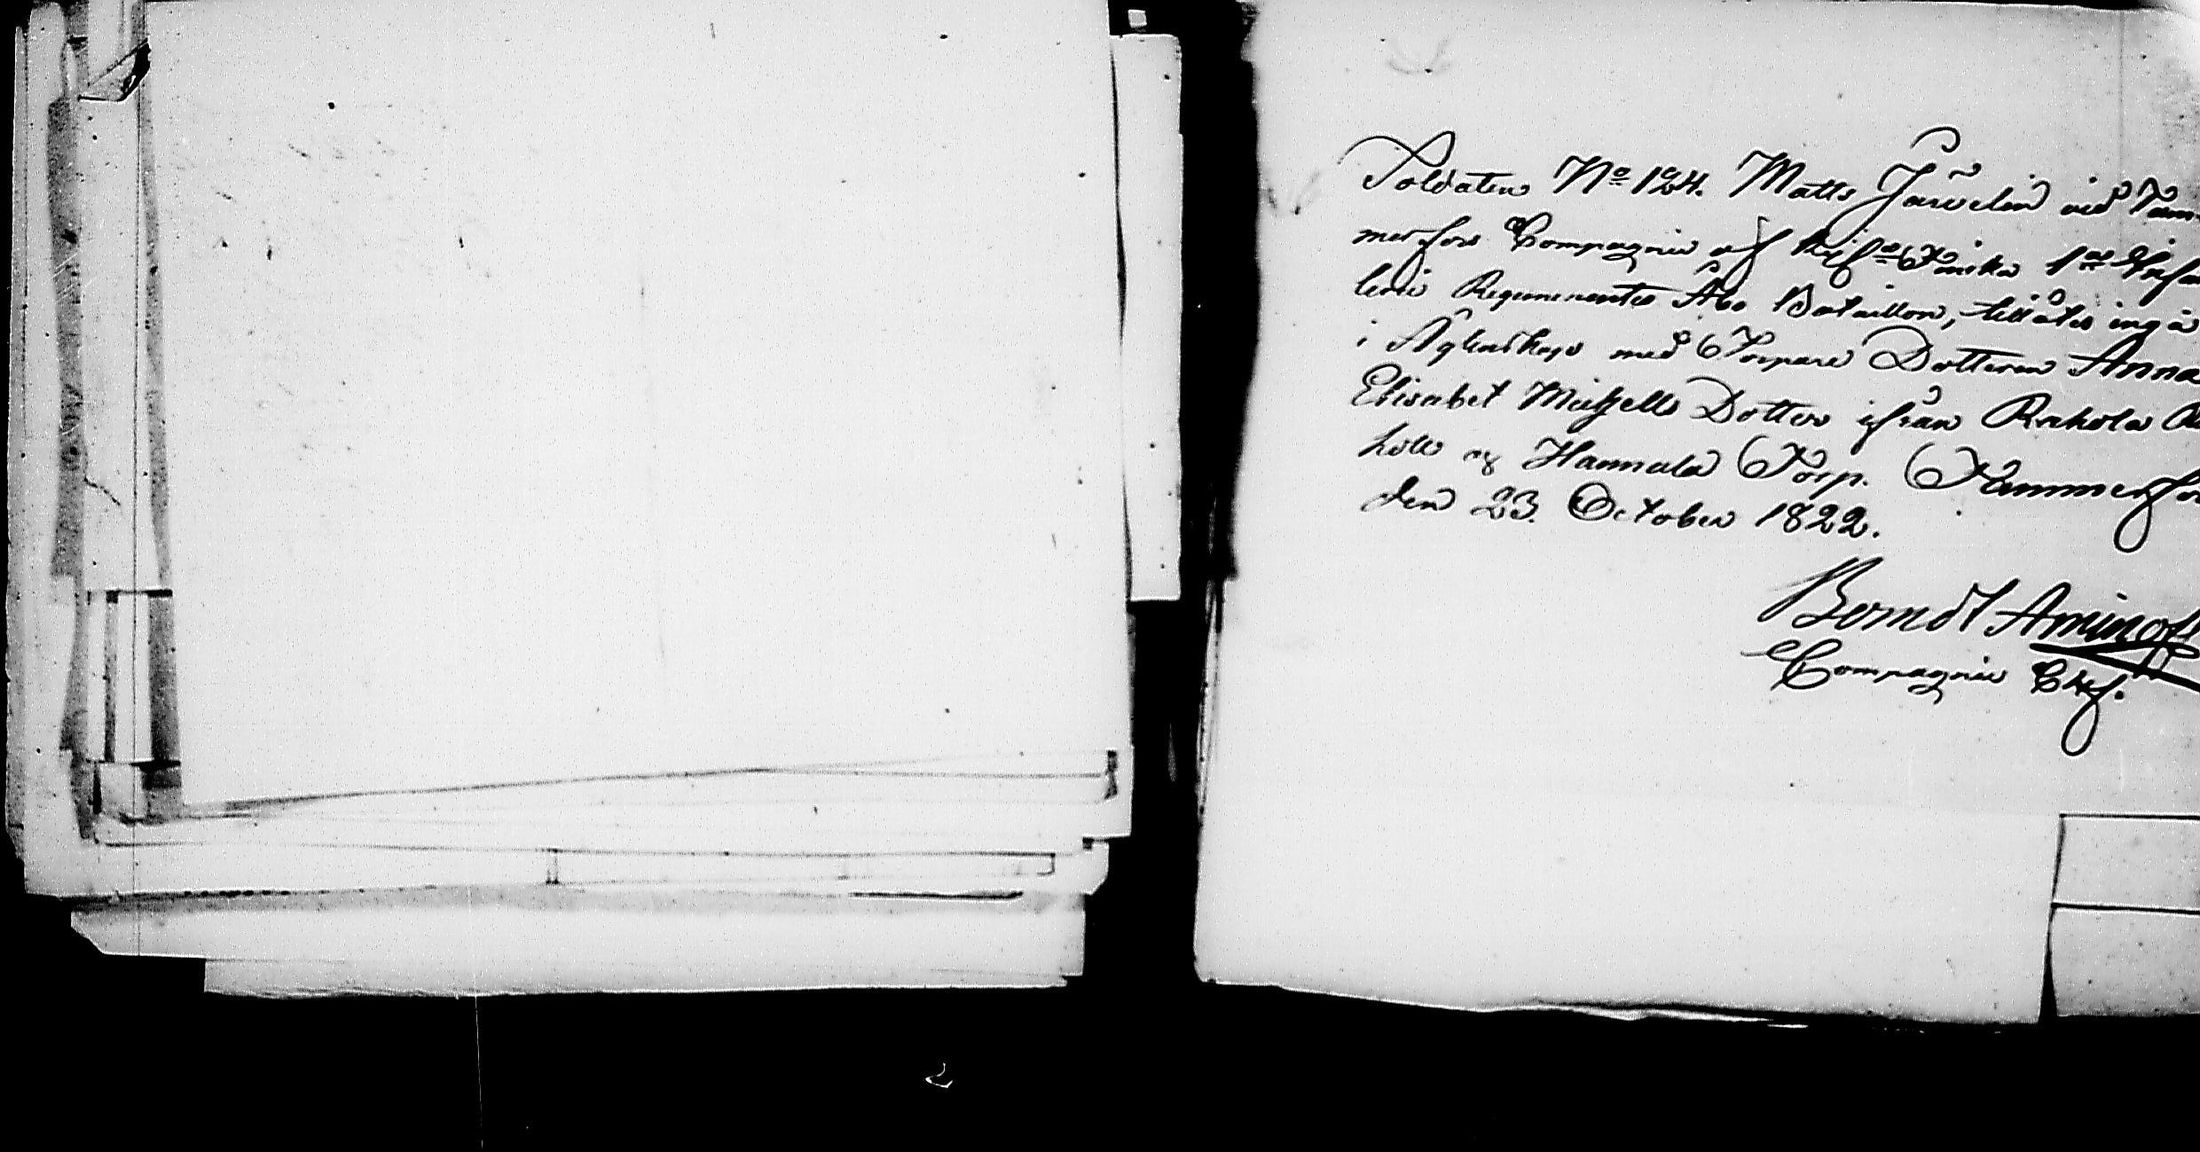 Soldaten No 124. Matts Järvelin vid Tam-
merfors Compagnie af Kejs:a Finska 1:a Infan
terie Regementets Åbo Bataillon, tillåtes ingå
i Ägtenskap med Torpare Dotteren Anna
Elisabet Michells Dotter ifrån Rahola
håll og Hannula Torp. Tammerfors
den 23. October 1822.
Berndt Aminoff
Compagnie Chef.